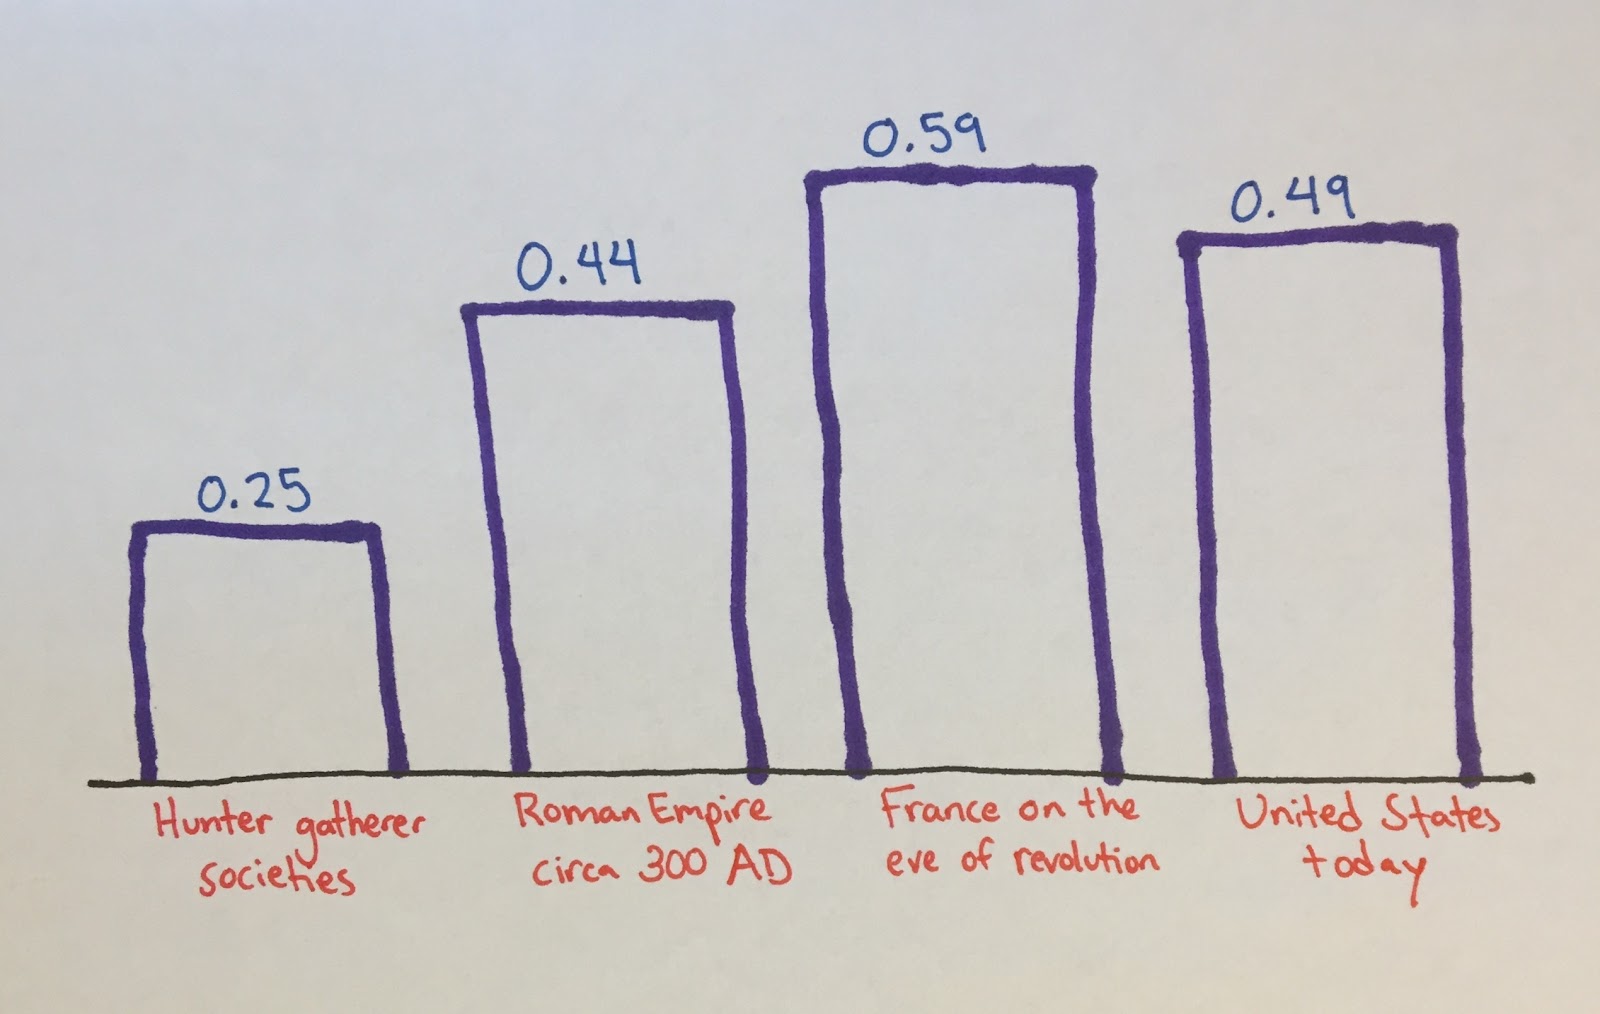 0.25
0.44
0.59
0.49
Hunter gatherer
societies
Roman Empire
circa 300 AD
France on the
eve of revolution
United States
today